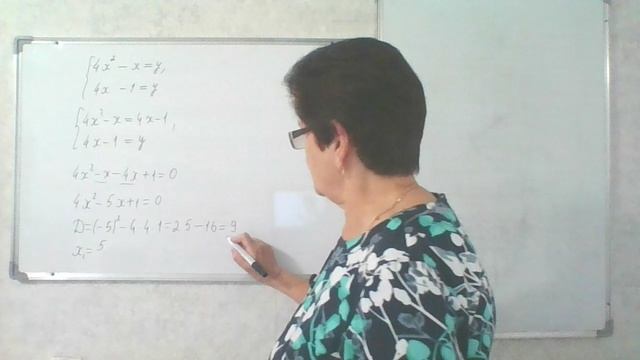 4x² - x = y,
4x - 1 = y
4x² - x = 4x - 1,
4x - 1 = y
4x² - x - 4x + 1 = 0
4x² - 5x + 1 = 0
D = (-5)² - 4 4 1 = 25 - 16 = 9
x₁ = 5